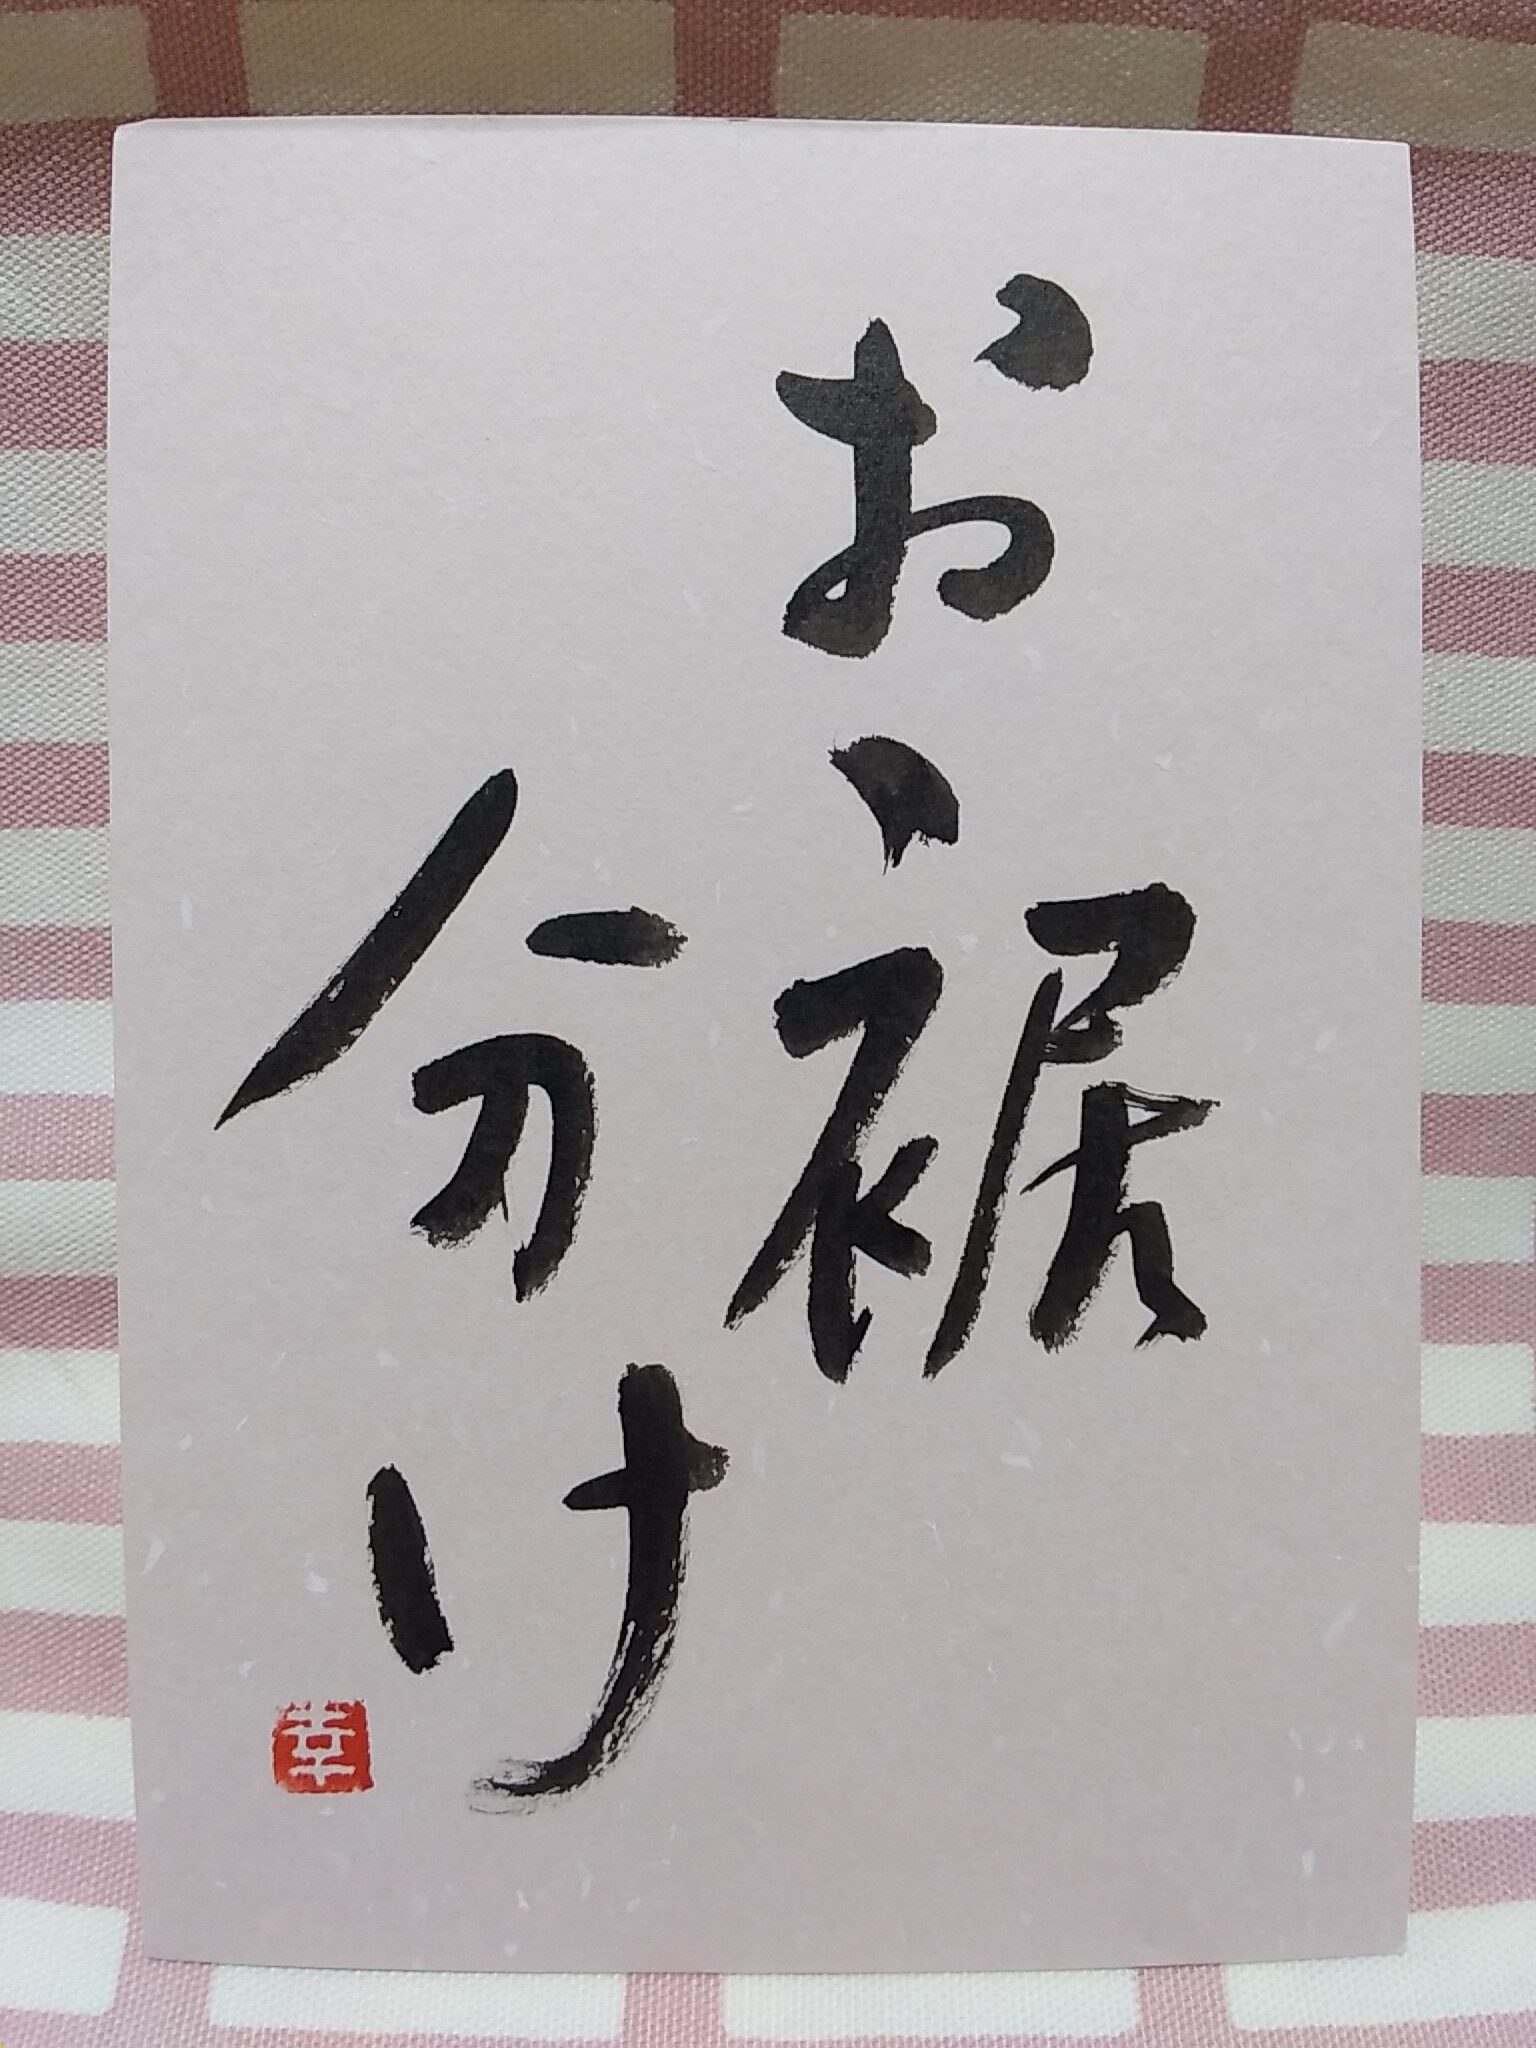 お裾
分け
幸